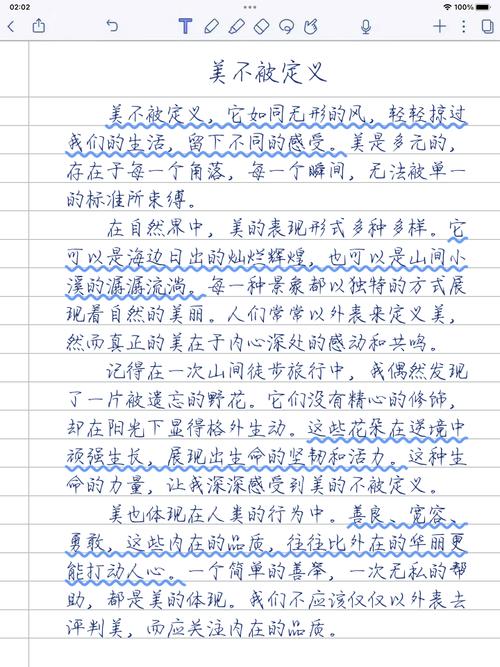 02:02
100%
T
美不被定义
美不被定义，它如同无形的风，轻轻掠过
我们的生活，留下不同的感受。美是多元的，
存在于每一个角落，每一个瞬间，无法被单一
的标准所束缚。
在自然界中，美的表现形式多种多样。它
可以是海边日出的灿烂辉煌，也可以是山间小
溪的潺潺流淌。每一种景象都以独特的方式展
现着自然的美丽。人们常常以外表来定义美，
然而真正的美在于内心深处的感动和共鸣。
记得在一次山间徒步旅行中，我偶然发现
了一片被遗忘的野花。它们没有精心的修饰，
却在阳光下显得格外生动。这些花朵在逆境中
顽强生长，展现出生命的坚韧和活力。这种生
命的力量，让我深深感受到美的不被定义。
美也体现在人类的行为中。善良、宽容、
勇敢，这些内在的品质，往往比外在的华丽更
能打动人心。一个简单的善举，一次无私的帮
助，都是美的体现。我们不应该仅仅以外表去
评判美，而应关注内在的品质。